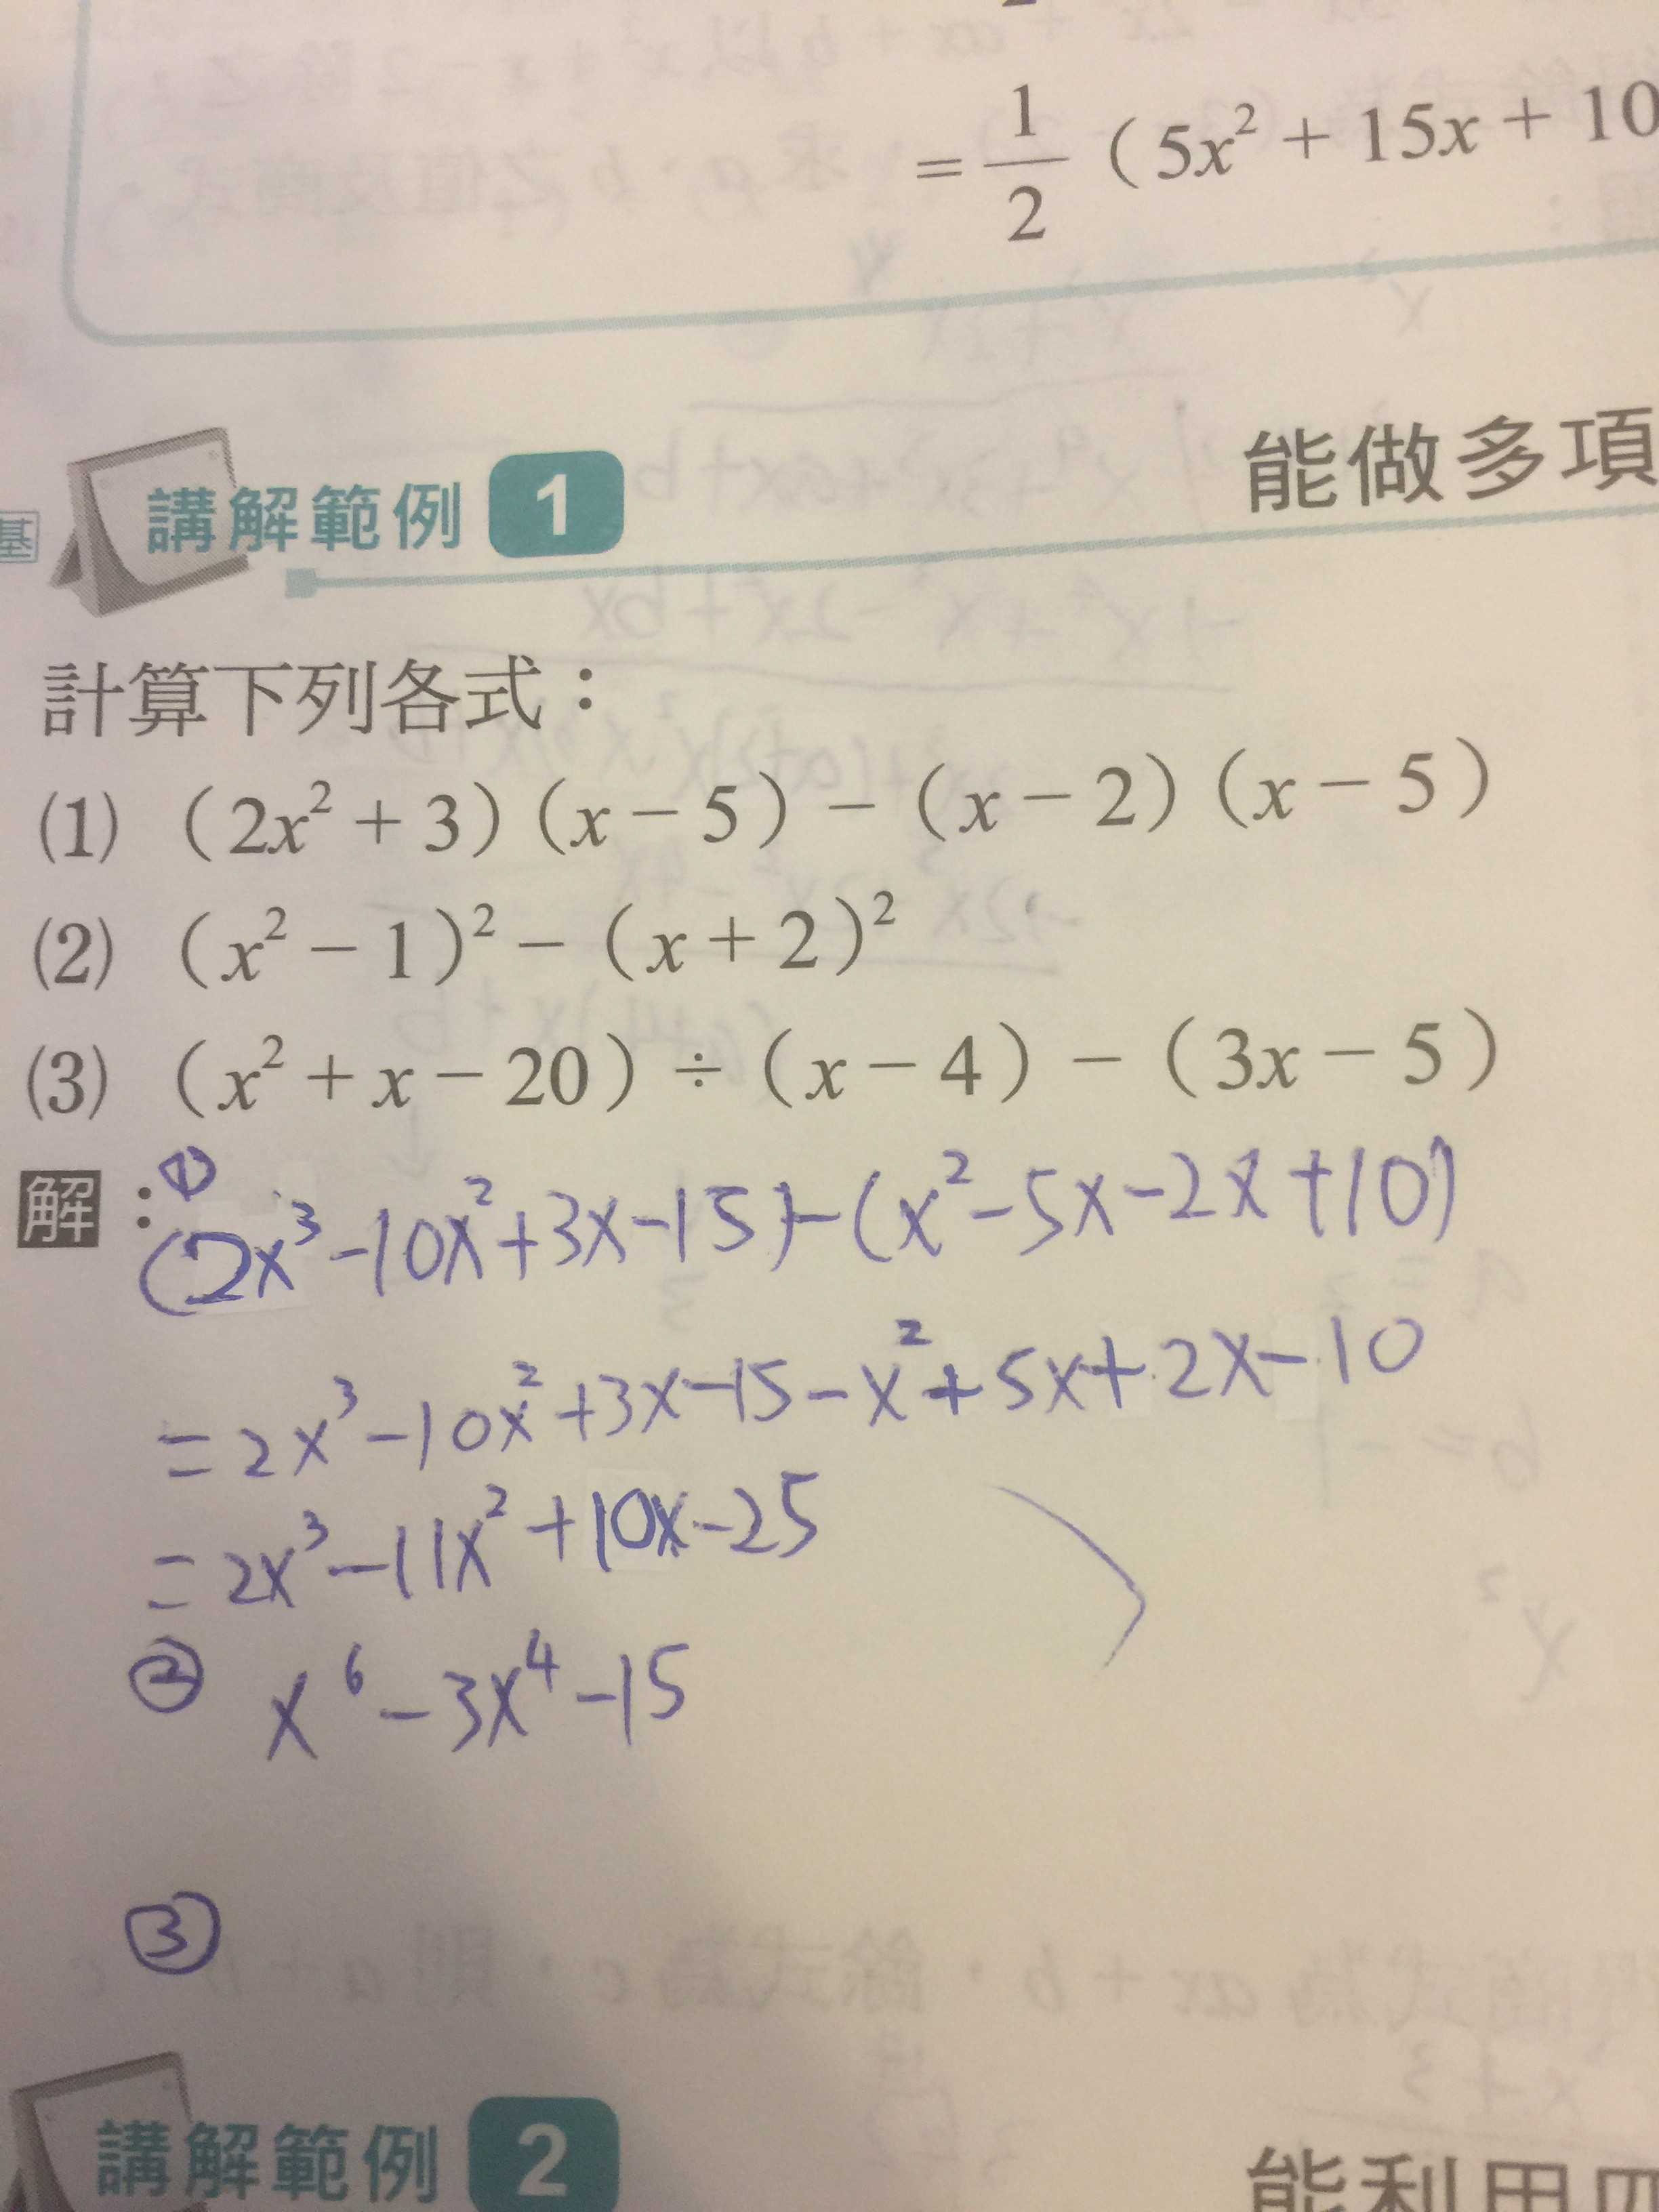 = 1/2 (5x² + 15x + 10
基 講解範例 1 能做多項
計算下列各式：
(1) (2x² + 3)(x − 5) − (x − 2)(x − 5)
(2) (x² − 1)² − (x + 2)²
(3) (x² + x − 20) ÷ (x − 4) − (3x − 5)
解：①
(2x³ − 10x² + 3x − 15) − (x² − 5x − 2x + 10)
= 2x³ − 10x² + 3x − 15 − x² + 5x + 2x − 10
= 2x³ − 11x² + 10x − 25
② x⁶ − 3x⁴ − 15
③
講解範例 2 能利用四